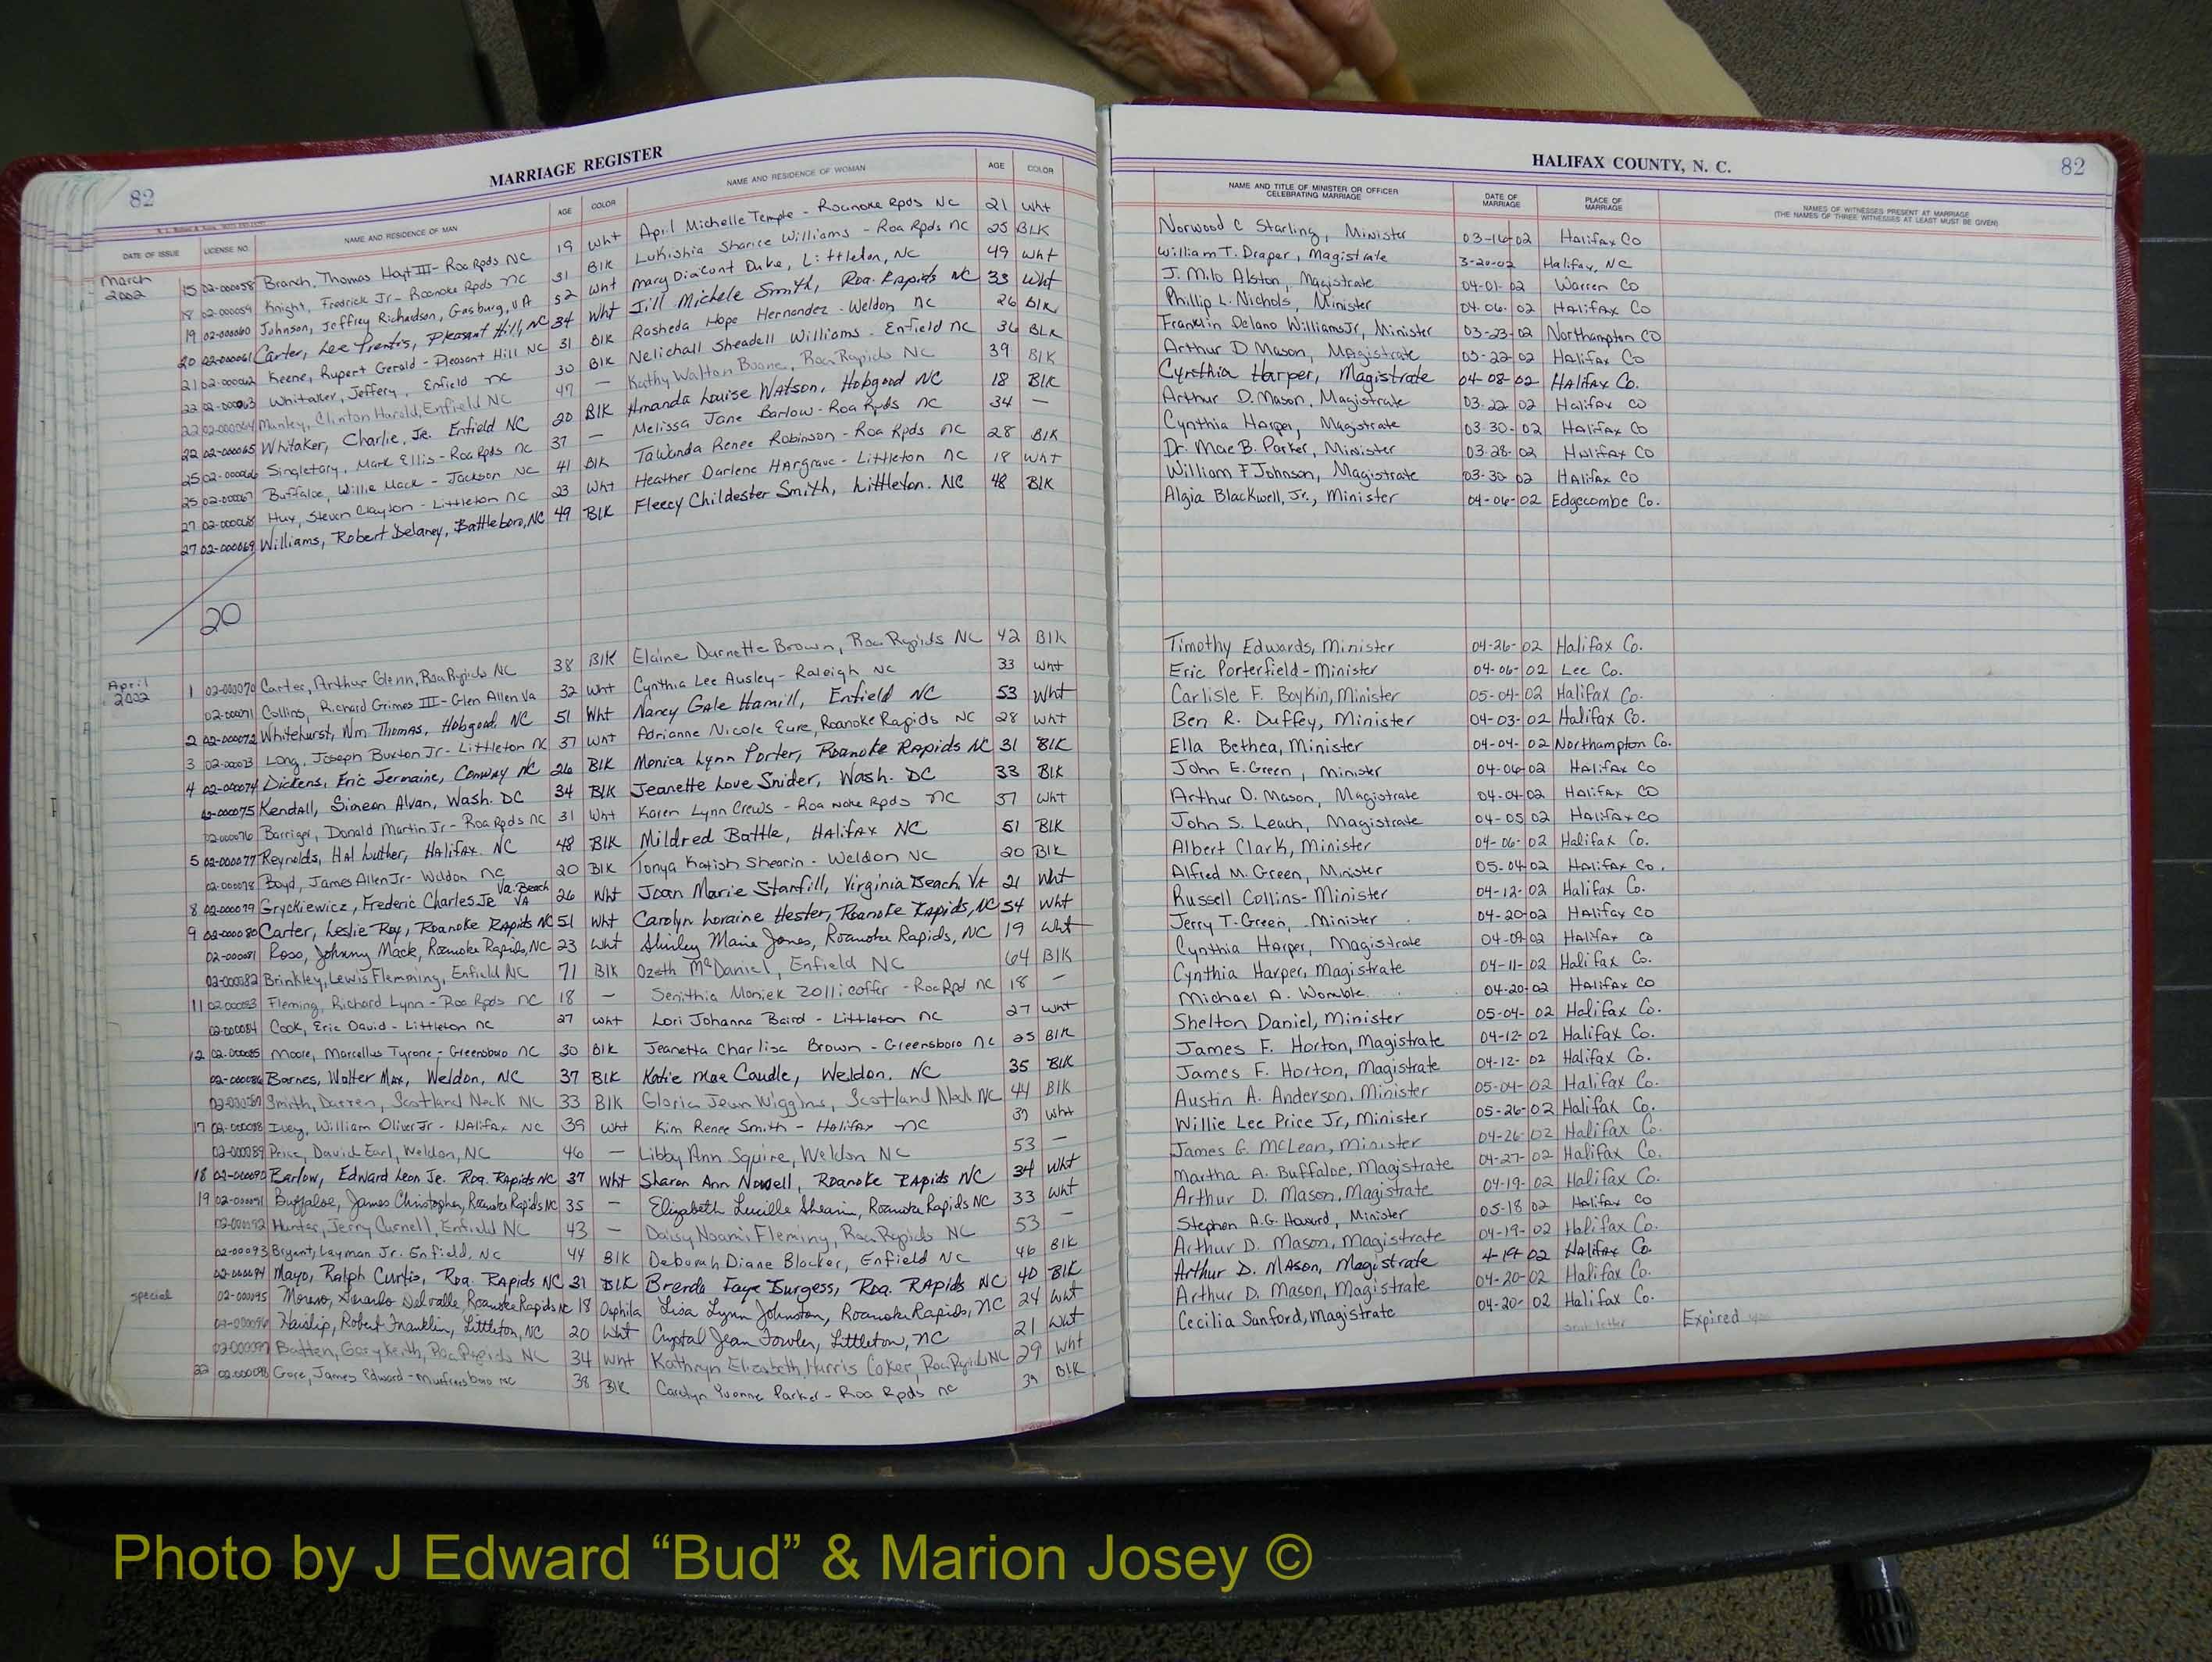 82 MARRIAGE REGISTER
DATE OF ISSUE LICENSE NO. NAME AND RESIDENCE OF MAN AGE COLOR NAME AND RESIDENCE OF WOMAN AGE COLOR
March 2002 15 02-000058 Branch, Thomas Hoyt III- Roa Rpds NC 19 Wht April Michelle Temple - Roanoke Rpds NC 21 Wht
18 02-000059 Knight, Fredrick Jr- Roanoke Rpds NC 31 Blk Lukishia Sharice Williams - Roa Rpds NC 25 BLK
19 02-000060 Johnson, Jeffrey Richardson, Gasburg, VA 52 Wht Mary Diacont Duke, Littleton, NC 49 Wht
20 02-000061 Carter, Lee Prentis, Pleasant Hill, NC 34 Wht Jill Michele Smith, Roa. Rapids NC 33 Wht
21 02-000062 Keene, Rupert Gerald - Pleasant Hill NC 31 Blk Rasheda Hope Hernandez - Weldon NC 26 Blk
22 02-000063 Whitaker, Jeffery, Enfield NC 30 Blk Nelichall Sheadell Williams - Enfield NC 36 BLK
22 02-000064 Manley, Clinton Harold, Enfield NC 47 — Kathy Walton Boone, Roa Rapids NC 39 Blk
22 02-000065 Whitaker, Charlie, Jr. Enfield NC 20 Blk Amanda Louise Watson, Hobgood NC 18 Blk
25 02-000066 Singletary, Mark Ellis - Roa Rpds NC 37 — Melissa Jane Barlow - Roa Rpds NC 34 —
25 02-000067 Buffaloe, Willie Mack - Jackson NC 41 Blk TaWanda Renee Robinson - Roa Rpds NC 28 Blk
27 02-000068 Hux, Steven Clayton - Littleton NC 23 Wht Heather Darlene Hargrave - Littleton NC 18 Wht
27 02-000069 Williams, Robert Delaney, Battleboro, NC 49 Blk Fleecy Childester Smith, Littleton. NC 48 Blk
20
April 2002 1 02-000070 Carter, Arthur Glenn, Roa Rapids NC 38 Blk Elaine Durnette Brown, Roa Rapids NC 42 Blk
02-000071 Collins, Richard Grimes III - Glen Allen Va 32 Wht Cynthia Lee Ausley - Raleigh NC 33 Wht
2 02-000072 Whitehurst, Wm. Thomas, Hobgood NC 51 Wht Nancy Gale Hamill, Enfield NC 53 Wht
3 02-000073 Long, Joseph Buxton Jr - Littleton NC 37 Wht Adrianne Nicole Eure, Roanoke Rapids NC 28 Wht
4 02-000074 Dickens, Eric Jermaine, Conway NC 26 Blk Monica Lynn Porter, Roanoke Rapids NC 31 Blk
02-000075 Kendall, Simeon Alvan, Wash. DC 34 Blk Jeanette Love Snider, Wash. DC 33 Blk
02-000076 Barriger, Donald Martin Jr - Roa Rpds NC 31 Wht Karen Lynn Crews - Roanoke Rpds NC 37 Wht
5 02-000077 Reynolds, Hal Luther, Halifax. NC 48 Blk Mildred Battle, Halifax NC 51 Blk
02-000078 Boyd, James Allen Jr - Weldon NC 20 Blk Tonya Katish Shearin - Weldon NC 20 Blk
8 02-000079 Gryckiewicz, Frederic Charles Jr Va. Beach VA 26 Wht Joan Marie Stanfill, Virginia Beach VA 21 Wht
9 02-000080 Carter, Leslie Roy, Roanoke Rapids NC 51 Wht Carolyn Loraine Hester, Roanoke Rapids, NC 54 Wht
02-000081 Ross, Johnny Mack, Roanoke Rapids, NC 23 Wht Shirley Marie Jones, Roanoke Rapids, NC 19 Wht
02-000082 Brinkley, Lewis Flemming, Enfield NC 71 Blk Ozeth McDaniel, Enfield NC 64 Blk
11 02-000083 Fleming, Richard Lynn - Roa Rpds NC 18 — Senithia Moniek Zollicoffer - Roa Rpd NC 18 —
02-000084 Cook, Eric David - Littleton NC 27 Wht Lori Johanna Baird - Littleton NC 27 Wht
12 02-000085 Moore, Marcellus Tyrone - Greensboro NC 30 Blk Jeanetta Charlisa Brown - Greensboro NC 25 Blk
02-000086 Barnes, Walter Max, Weldon, NC 37 Blk Katie Mae Caudle, Weldon. NC 35 Blk
02-000087 Smith, Darren, Scotland Neck NC 33 Blk Gloria Jean Wiggins, Scotland Neck NC 44 Blk
17 02-000088 Ivey, William Oliver Jr - Halifax NC 39 Wht Kim Renee Smith - Halifax NC 39 Wht
02-000089 Price, David Earl, Weldon, NC 46 — Libby Ann Squire, Weldon NC 53 —
18 02-000090 Barlow, Edward Leon Jr. Roa. Rapids NC 37 Wht Sharon Ann Nowell, Roanoke Rapids NC 34 Wht
19 02-000091 Buffaloe, James Christopher, Roanoke Rapids NC 35 — Elizabeth Lucille Shearin, Roanoke Rapids NC 33 Wht
02-000092 Hunter, Jerry Curnell, Enfield NC 43 — Daisy Noami Fleming, Roa Rapids NC 53 —
02-00093 Bryant, Layman Jr. Enfield, NC 44 Blk Deborah Diane Blocker, Enfield NC 46 Blk
02-000094 Mayo, Ralph Curtis, Roa. Rapids NC 31 Blk Brenda Faye Burgess, Roa. Rapids NC 40 Blk
special 02-000095 Moreno, Delvalle, Roanoke Rapids NC 18 Lisa Lynn Johnston, Roanoke Rapids, NC 24 Wht
02-000096 Robert Franklin, Littleton, NC 20 Wht Crystal Jean Fowler, Littleton, NC 21 Wht
02-000097 Batten, Gary Keith, Roa Rapids NC 34 Wht Kathryn Elizabeth Harris Coker, Roa Rapids NC 29 Wht
22 02-000098 Gore, James Edward - Murfreesboro NC 38 Blk Carolyn Yvonne Parker - Roa Rpds NC 39 Blk
HALIFAX COUNTY, N. C. 82
NAME AND TITLE OF MINISTER OR OFFICER CELEBRATING MARRIAGE DATE OF MARRIAGE PLACE OF MARRIAGE NAMES OF WITNESSES PRESENT AT MARRIAGE
(THE NAMES OF THREE WITNESSES AT LEAST MUST BE GIVEN)
Norwood C Starling, Minister 03-16-02 Halifax Co
William T. Draper, Magistrate 3-20-02 Halifax, NC
J. Milo Alston, Magistrate 04-01-02 Warren Co
Phillip L. Nichols, Minister 04-06-02 Halifax Co
Franklin Delano Williams Jr, Minister 03-23-02 Northampton CO
Arthur D Mason, Magistrate 03-22-02 Halifax Co
Cynthia Harper, Magistrate 04-08-02 Halifax Co.
Arthur D. Mason, Magistrate 03-22-02 Halifax Co
Cynthia Harper, Magistrate 03-30-02 Halifax Co
Dr. Mae B. Parker, Minister 03-28-02 Halifax Co
William F Johnson, Magistrate 03-30-02 Halifax Co
Algia Blackwell, Jr., Minister 04-06-02 Edgecombe Co.
Timothy Edwards, Minister 04-26-02 Halifax Co.
Eric Porterfield - Minister 04-06-02 Lee Co.
Carlisle F. Boykin, Minister 05-04-02 Halifax Co.
Ben R. Duffey, Minister 04-03-02 Halifax Co.
Ella Bethea, Minister 04-04-02 Northampton Co.
John E. Green, Minister 04-06-02 Halifax Co
Arthur D. Mason, Magistrate 04-04-02 Halifax CO
John S. Leach, Magistrate 04-05-02 Halifax CO
Albert Clark, Minister 04-06-02 Halifax Co.
Alfied M. Green, Minister 05-04-02 Halifax Co.
Russell Collins - Minister 04-12-02 Halifax Co.
Jerry T. Green, Minister 04-20-02 Halifax CO
Cynthia Harper, Magistrate 04-09-02 Halifax Co
Cynthia Harper, Magistrate 04-11-02 Halifax Co.
Michael A. Womble 04-20-02 Halifax CO
Shelton Daniel, Minister 05-04-02 Halifax Co.
James F. Horton, Magistrate 04-12-02 Halifax Co.
James F. Horton, Magistrate 04-12-02 Halifax Co.
Austin A. Anderson, Minister 05-04-02 Halifax Co.
Willie Lee Price Jr, Minister 05-26-02 Halifax Co.
James G. McLean, Minister 04-26-02 Halifax Co.
Martha A. Buffaloe, Magistrate 04-27-02 Halifax Co.
Arthur D. Mason, Magistrate 04-19-02 Halifax Co.
Stephen A.G. Howard, Minister 05-18-02 Halifax CO
Arthur D. Mason, Magistrate 04-19-02 Halifax Co.
Arthur D. Mason, Magistrate 4-19-02 Halifax Co.
Arthur D. Mason, Magistrate 04-20-02 Halifax Co.
Cecilia Sanford, Magistrate 04-20-02 Halifax Co.
sent letter Expired
Photo by J Edward “Bud” & Marion Josey ©